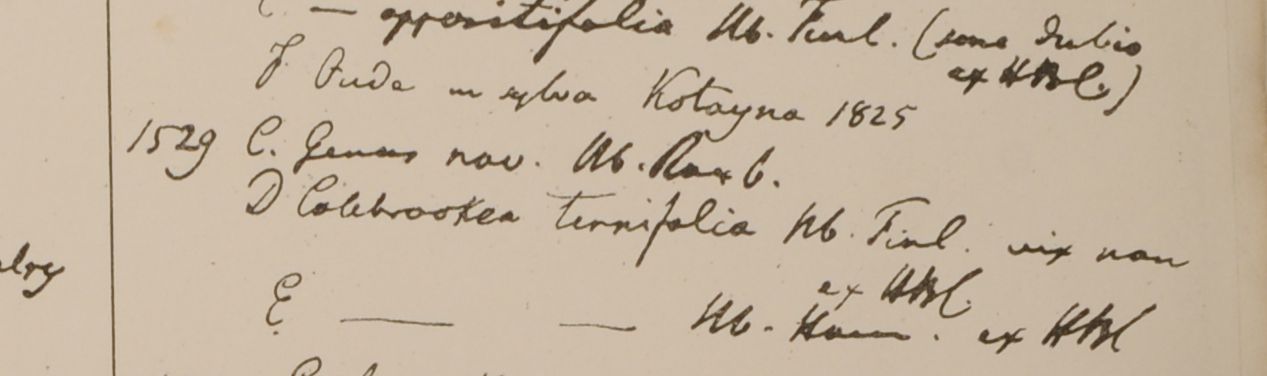 — oppositifolia Hb. Finl. (sine dubio
ex HBC.)
F Oude in sylva Kotayna 1825
1529 C. Genus nov. Hb. Roxb.
D Colebrookea ternifolia Hb. Finl. vix non
ex HBC.
E — — Hb. Ham. ex HBC